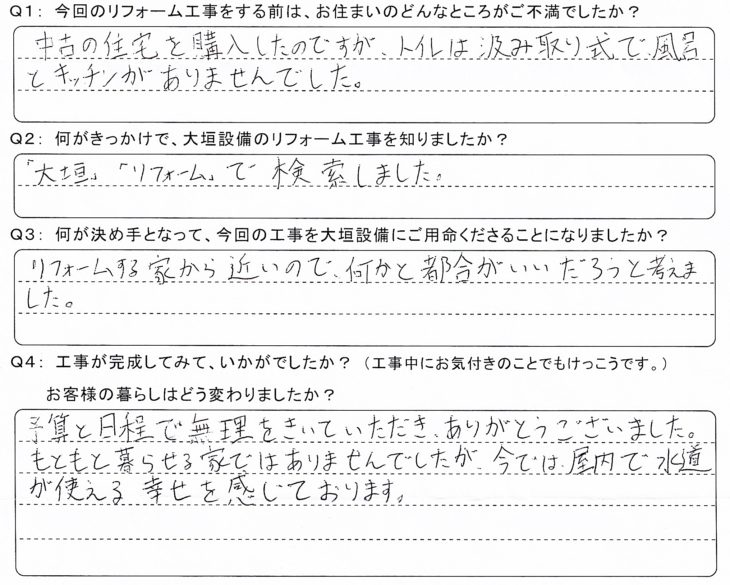 Q1： 今回のリフォーム工事をする前は、お住まいのどんなところがご不満でしたか？
中古の住宅を購入したのですが、トイレは汲み取り式で風呂
とキッチンがありませんでした。
Q2： 何がきっかけで、大垣設備のリフォーム工事を知りましたか？
「大垣」「リフォーム」で検索しました。
Q3： 何が決め手となって、今回の工事を大垣設備にご用命くださることになりましたか？
リフォームする家から近いので、何かと都合がいいだろうと考えま
した。
Q4： 工事が完成してみて、いかがでしたか？（工事中にお気付きのことでもけっこうです。）
お客様の暮らしはどう変わりましたか？
予算と日程で無理をきいていただき、ありがとうございました。
もともと暮らせる家ではありませんでしたが、今では、屋内で水道
が使える幸せを感じております。